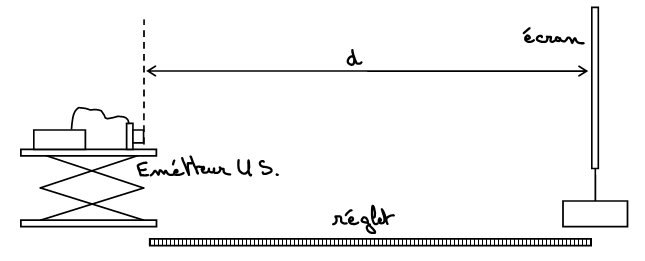 écran
d
Emétteur U S.
réglet